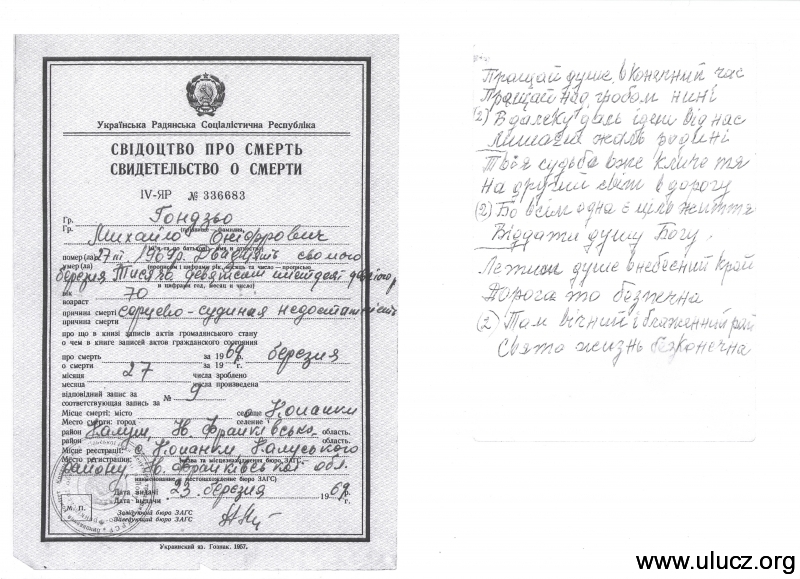 Українська Радянська Соціалістична Республіка
СВІДОЦТВО ПРО СМЕРТЬ
СВИДЕТЕЛЬСТВО О СМЕРТИ
IV-ЯР № 336683
Гр. Гондзьо
Гр. Михайло Онуфрович
помер(ла) 27 III. 1969 р. Двадцять сьомого
умер(ла)
березня Тисяча девятсот шістдесят девятого р.
вік 70
возраст
причина смерті серцево-судинная недостатність
причина смерти
про що в книзі записів актів громадянського стану
о чем в книге записей актов гражданского состояния
про смерть за 1969 р. березня
о смерти за 19 г.
місяця 27 числа зроблено
месяца числа произведена
відповідний запис за № 9
соответствующая запись за
Місце смерті: місто селище Копанки
Место смерти: город селение
район Калуш, Ів. Франківська область.
район область.
Місце реєстрації: с. Копанки, Калуського
Место регистрации:
району, Ів. Франківської обл.
Дата видачі 23 березня 1969 р.
Дата выдачи г.
М. П.
Завідуючий бюро ЗАГС
Заведующий бюро ЗАГС
Украинский яз. Гознак. 1957.
Пращай душе в конечний час
Пращай над гробом нині
(2) В далеку даль ідеш від нас
Лишаєш жаль родині
Твоя судьба вже кличе тя
На другий світ в дорогу
(2) Бо всім одна є ціль життя
Віддати душу Богу.
Летиш душе в небесний край
Дорога то безпечна
(2) Там вічний і блаженний рай
Свята жизнь безконечна
www.ulucz.org